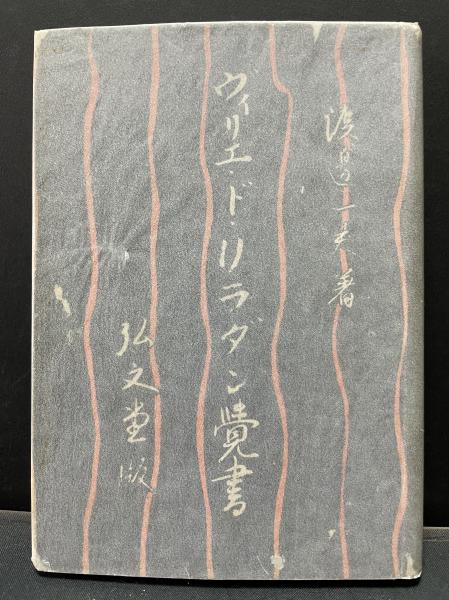 渡邊一夫著
ヴィリエ・ド・リラダン覺書
弘文堂版